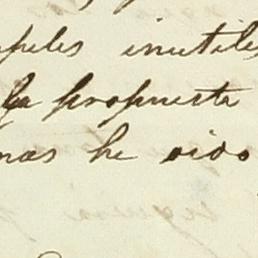 apeles inutiles
la propuesta
mas he oido